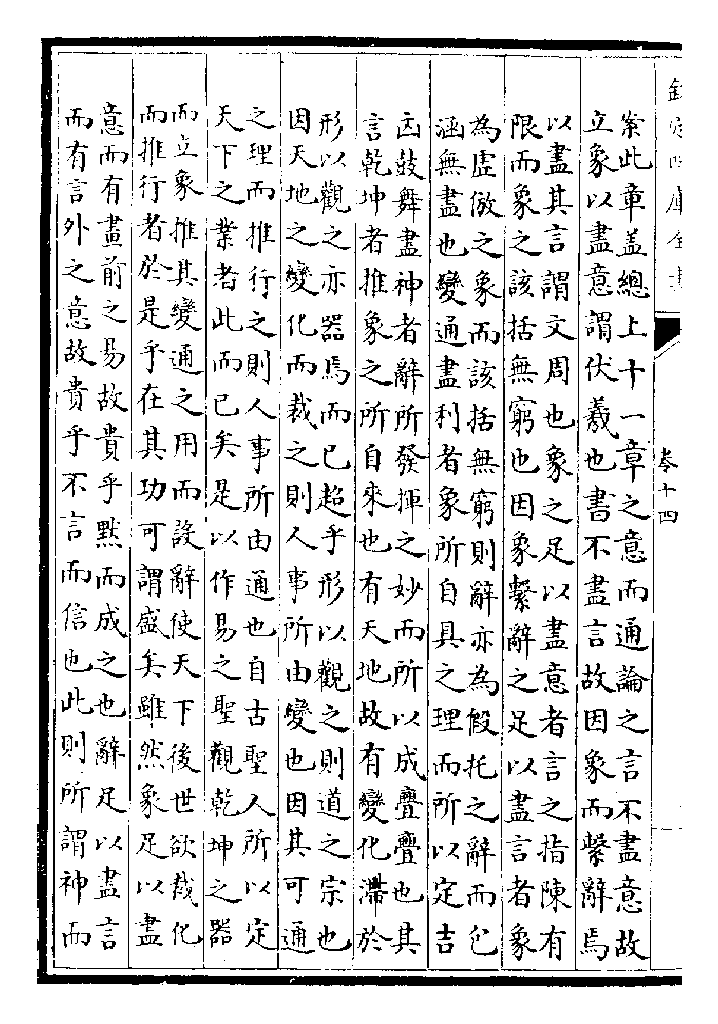 欽定四庫全書
卷十四
案此章蓋總上十一章之意而通論之言不盡意故
立象以盡意謂伏羲也書不盡言故因象而繫辭焉
以盡其言謂文周也象之足以盡意者言之指陳有
限而象之該括無窮也因象繫辭之足以盡言者象
為虚倣之象而該括無窮則辭亦為假托之辭而包
涵無盡也變通盡利者象所自具之理而所以定吉
凶鼓舞盡神者辭所發揮之妙而所以成亹亹也其
言乾坤者推象之所自來也有天地故有變化滯於
形以觀之亦器焉而已超乎形以觀之則道之宗也
因天地之變化而裁之則人事所由變也因其可通
之理而推行之則人事所由通也自古聖人所以定
天下之業者此而已矣是以作易之聖觀乾坤之器
而立象推其變通之用而設辭使天下後世欲裁化
而推行者於是乎在其功可謂盛矣雖然象足以盡
意而有畫前之易故貴乎黙而成之也辭足以盡言
而有言外之意故貴乎不言而信也此則所謂神而